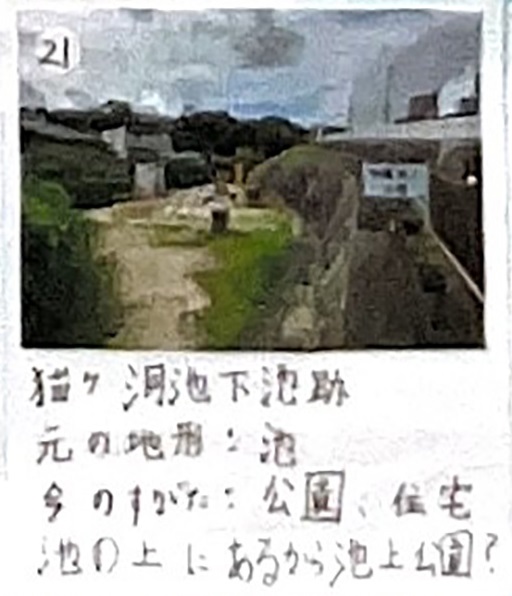 21
猫ヶ洞池下池跡
元の地形:池
今のすがた:公園、住宅
池の上にあるから池上公園?